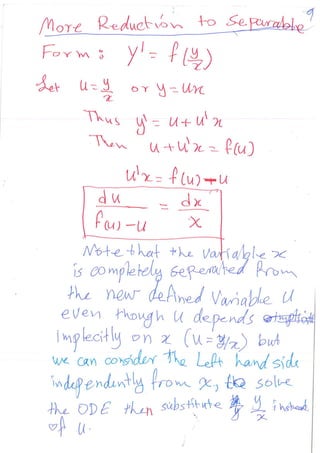 9
More Reduction to Separable
Form: y' = f(y/x)
Let u = y/x or y = ux
Thus y' = u + u'x
Then u + u'x = f(u)
u'x = f(u) - u
du/(f(u) - u) = dx/x
Note that the variable x
is completely seperated from
the new defined variable u
even though u depends
implecitly on x (u = y/x) but
we can consider the Left hand side
independently from x, to solve
the ODE then substitute y/x instead
of u.